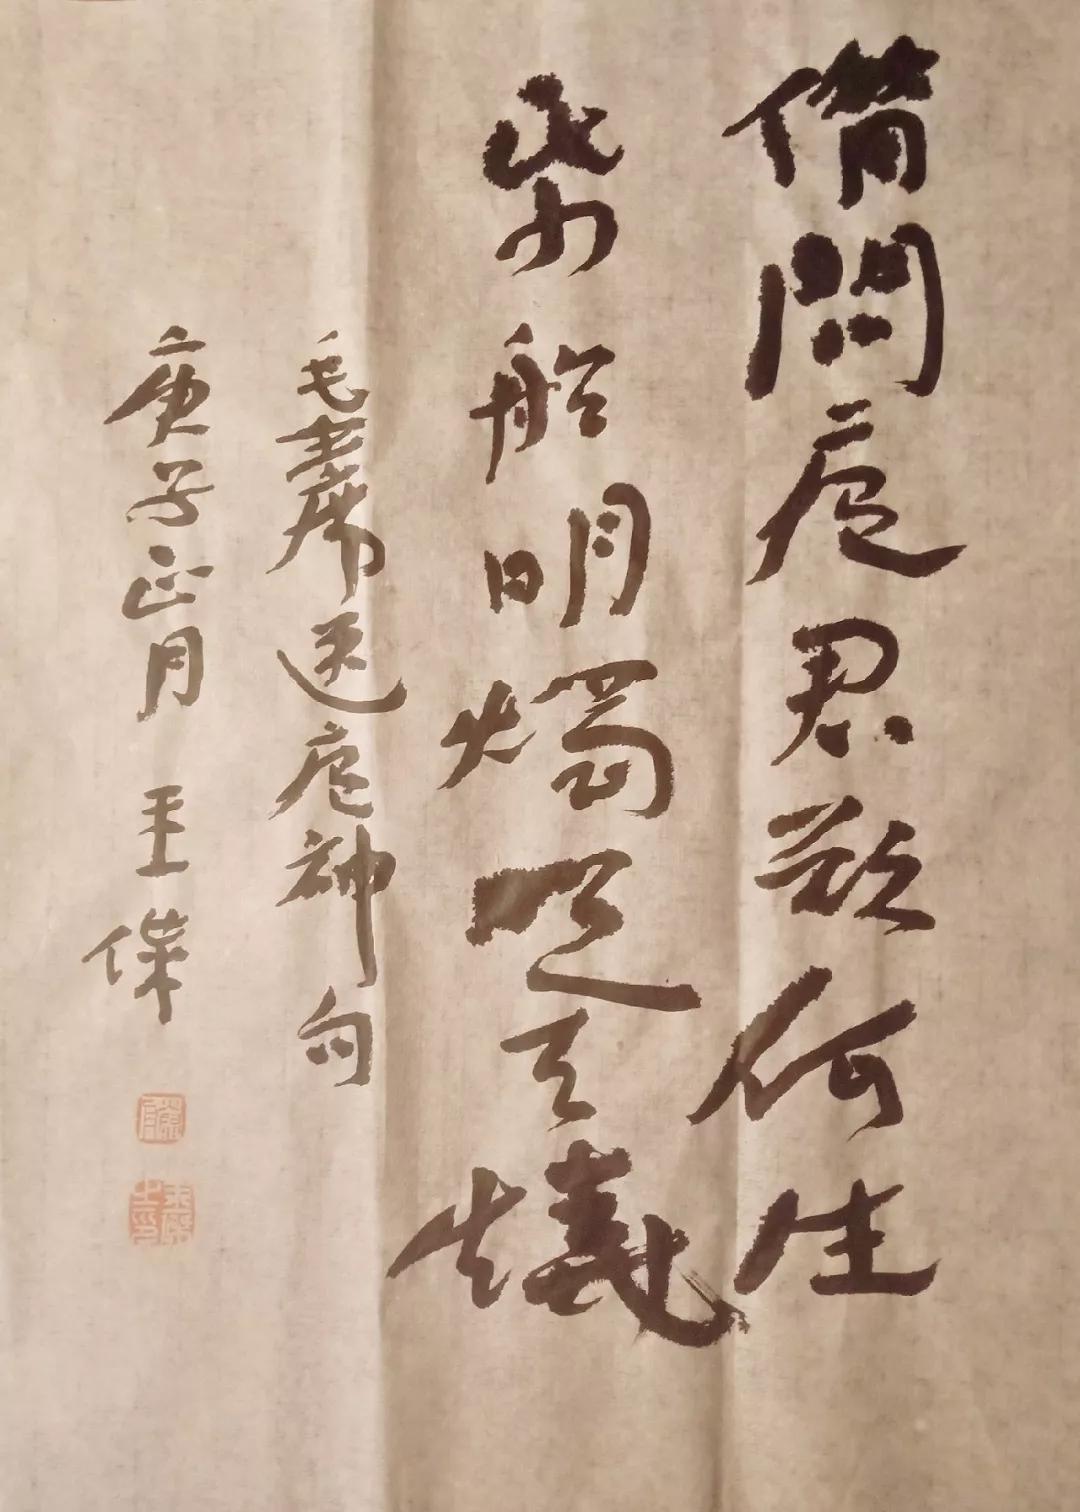 借問瘟君欲何往
帋船明燭照天燒
毛主席送瘟神句
庚子正月 王